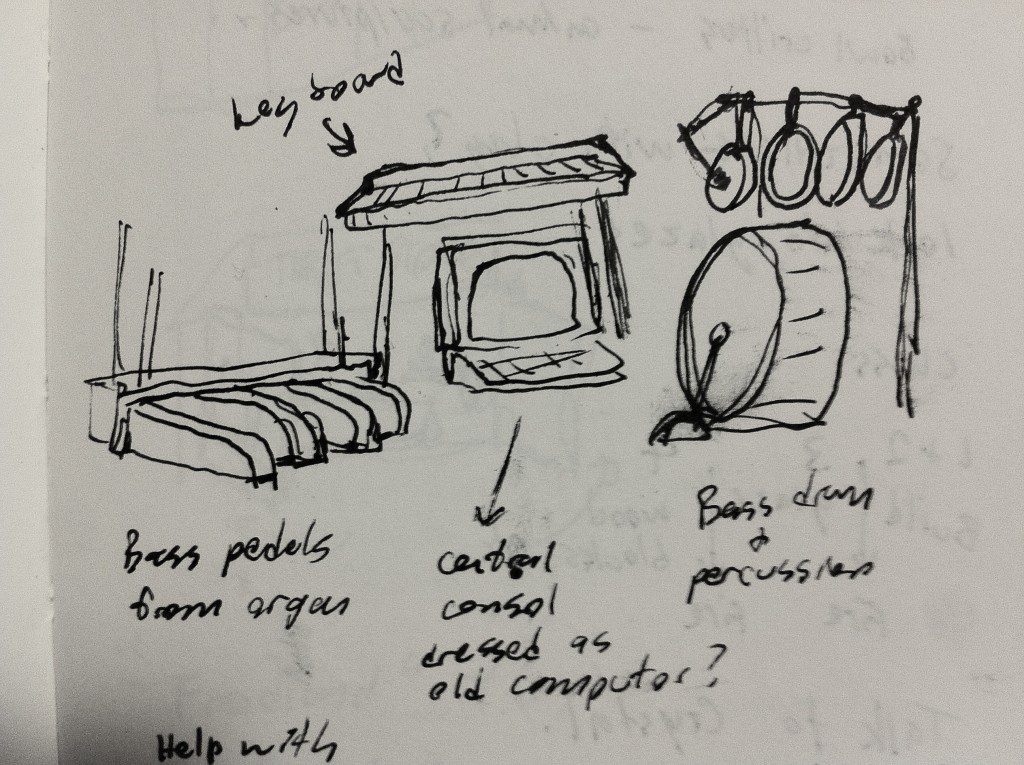 keyboard
Bass pedels
from organ
central
consol
dressed as
old computor?
Bass drum
&
percussion
Help with